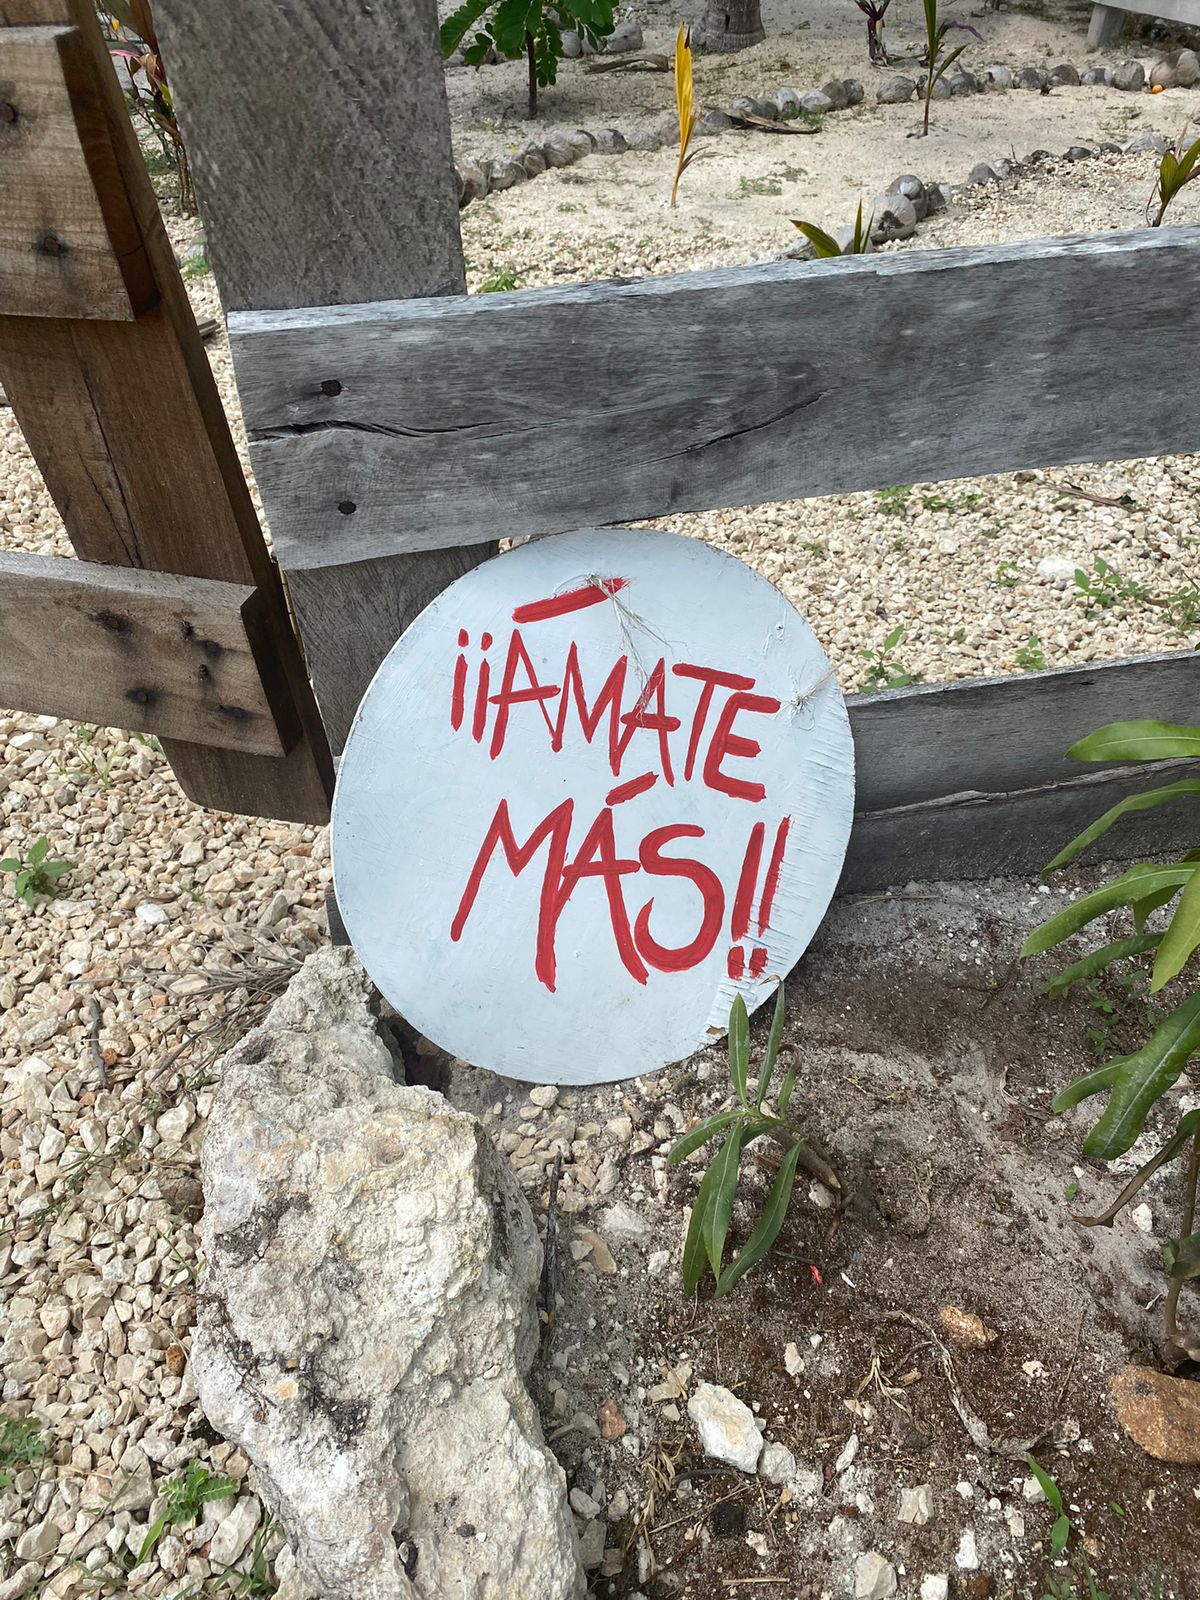 ¡¡ÁMATE
MÁS!!